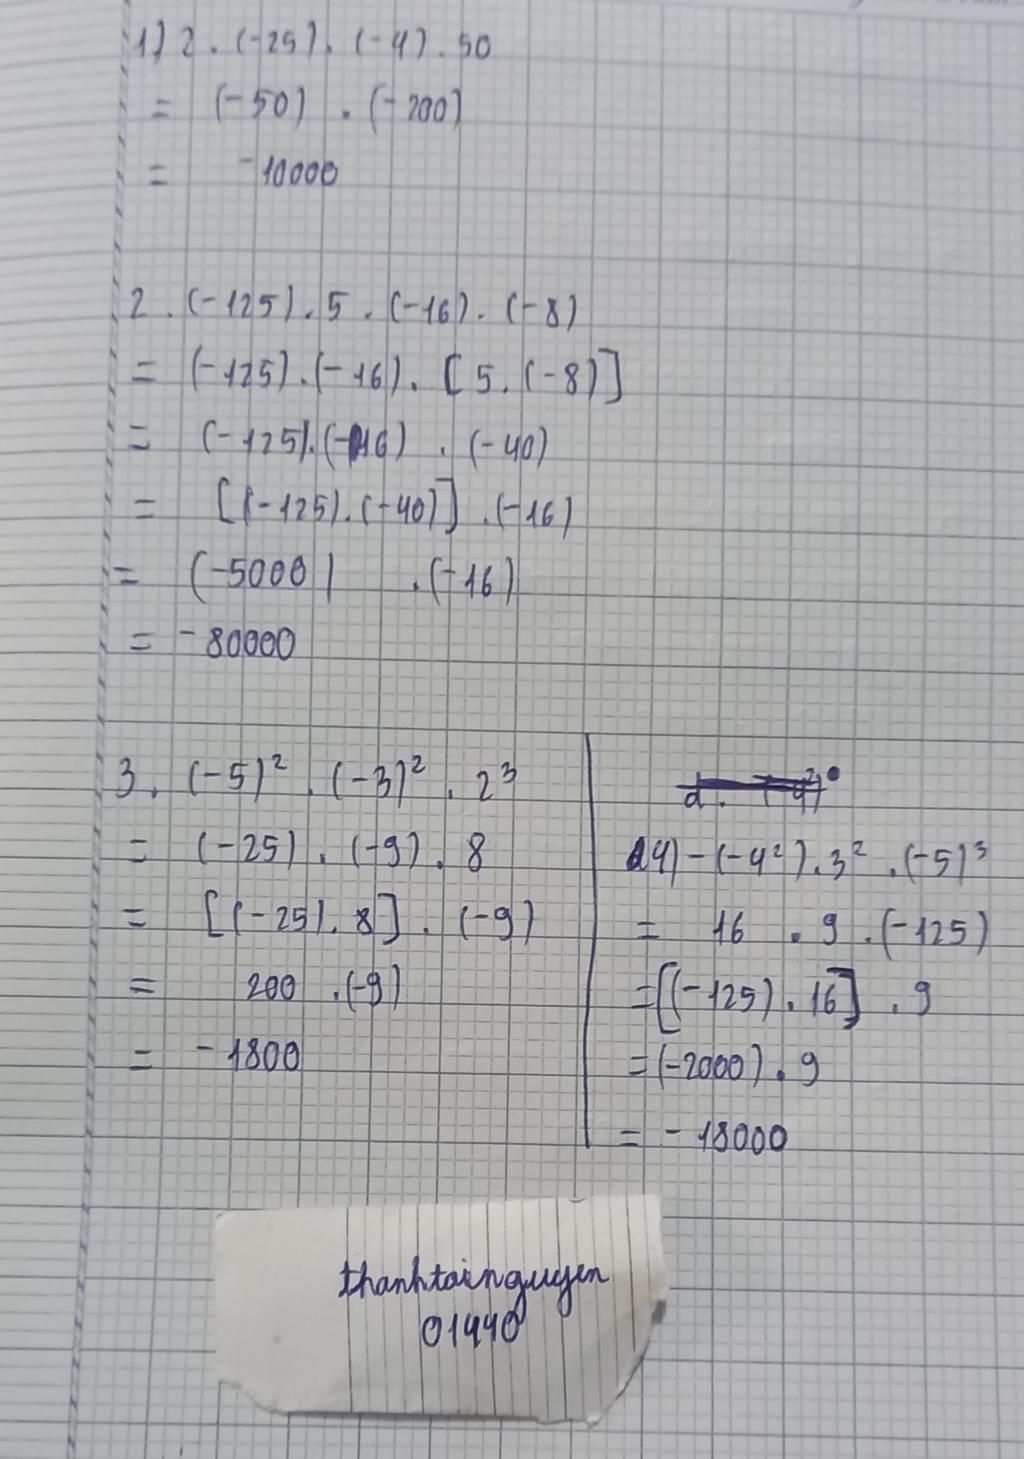 1) 2 . (-25) . (-4) . 50
= (-50) . (-200)
= -10000
2 . (-125) . 5 . (-16) . (-8)
= (-125) . (-16) . [5 . (-8)]
= (-125) . (-16) . (-40)
= [(-125) . (-40)] . (-16)
= (-5000) . (-16)
= -80000
3 . (-5)² . (-3)² . 2³
= (-25) . (-9) . 8
= [(-25) . 8] . (-9)
= 200 . (-9)
= -1800
4) -(-4²) . 3² . (-5)³
= 16 . 9 . (-125)
= [(-125) . 16] . 9
= (-2000) . 9
= -18000
thanhtainguyen
01440